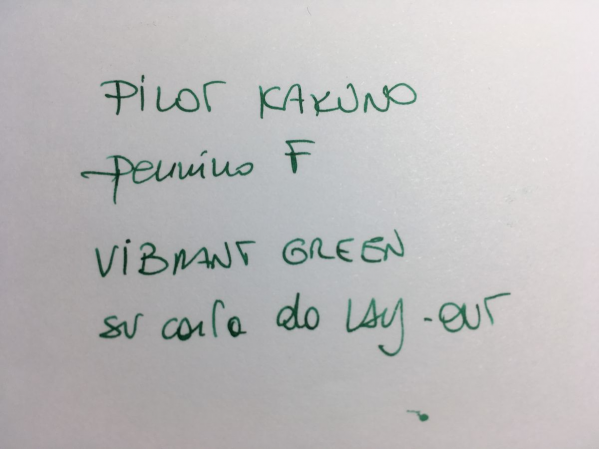 PILOT KAKUNO
pennino F
VIBRANT GREEN
su carta da LAY-OUT